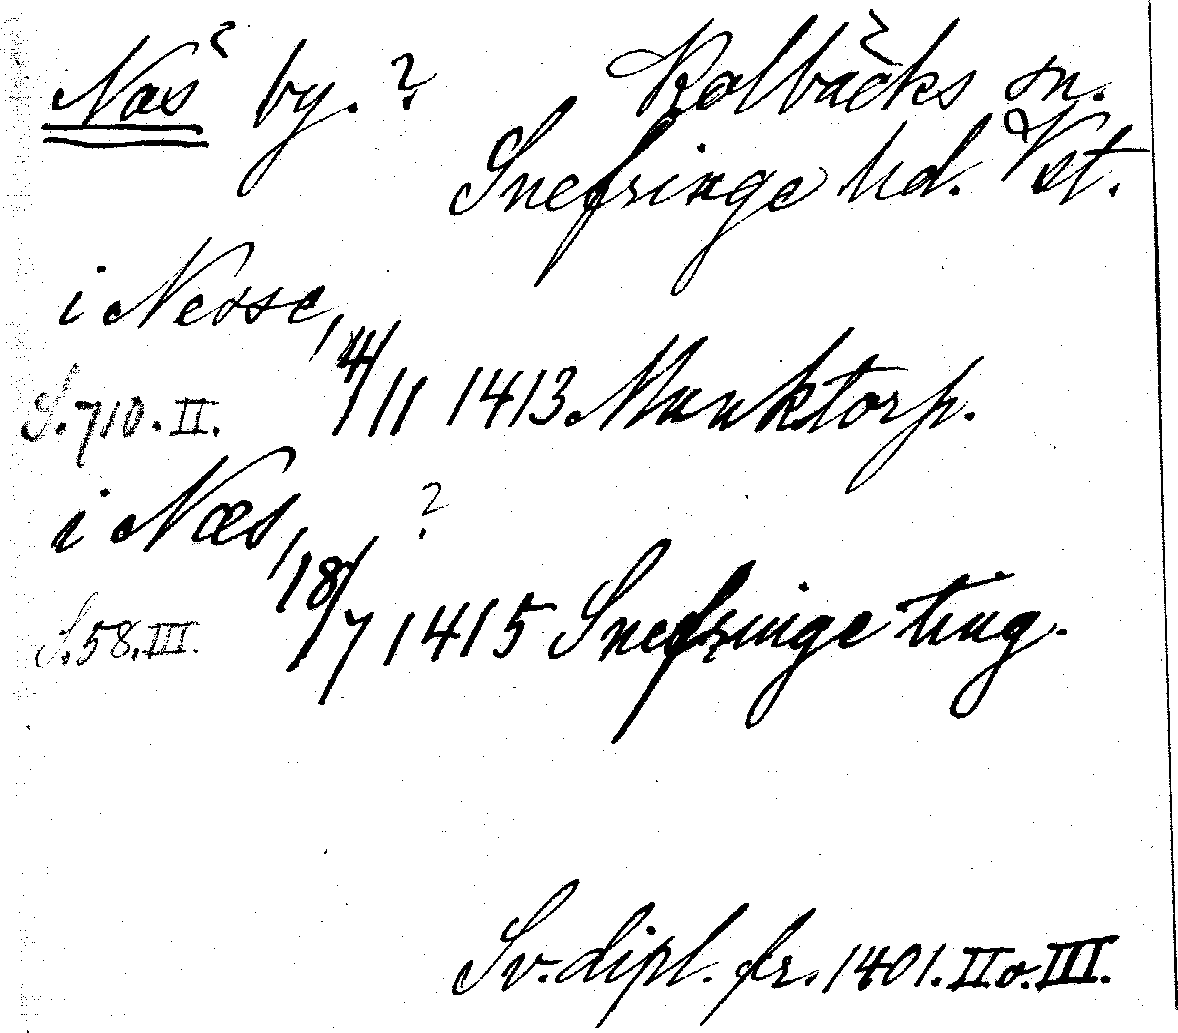 Näs by. ? Kolbäcks sn.
Snefringe hd. Vst.
i Nesse,
4/11 1413 Munktorp.
S. 710. II.
i Næs, ?
18/7 1415 Snefringe ting.
S. 58. III.
Sv. dipl. fr. 1401. II o. III.